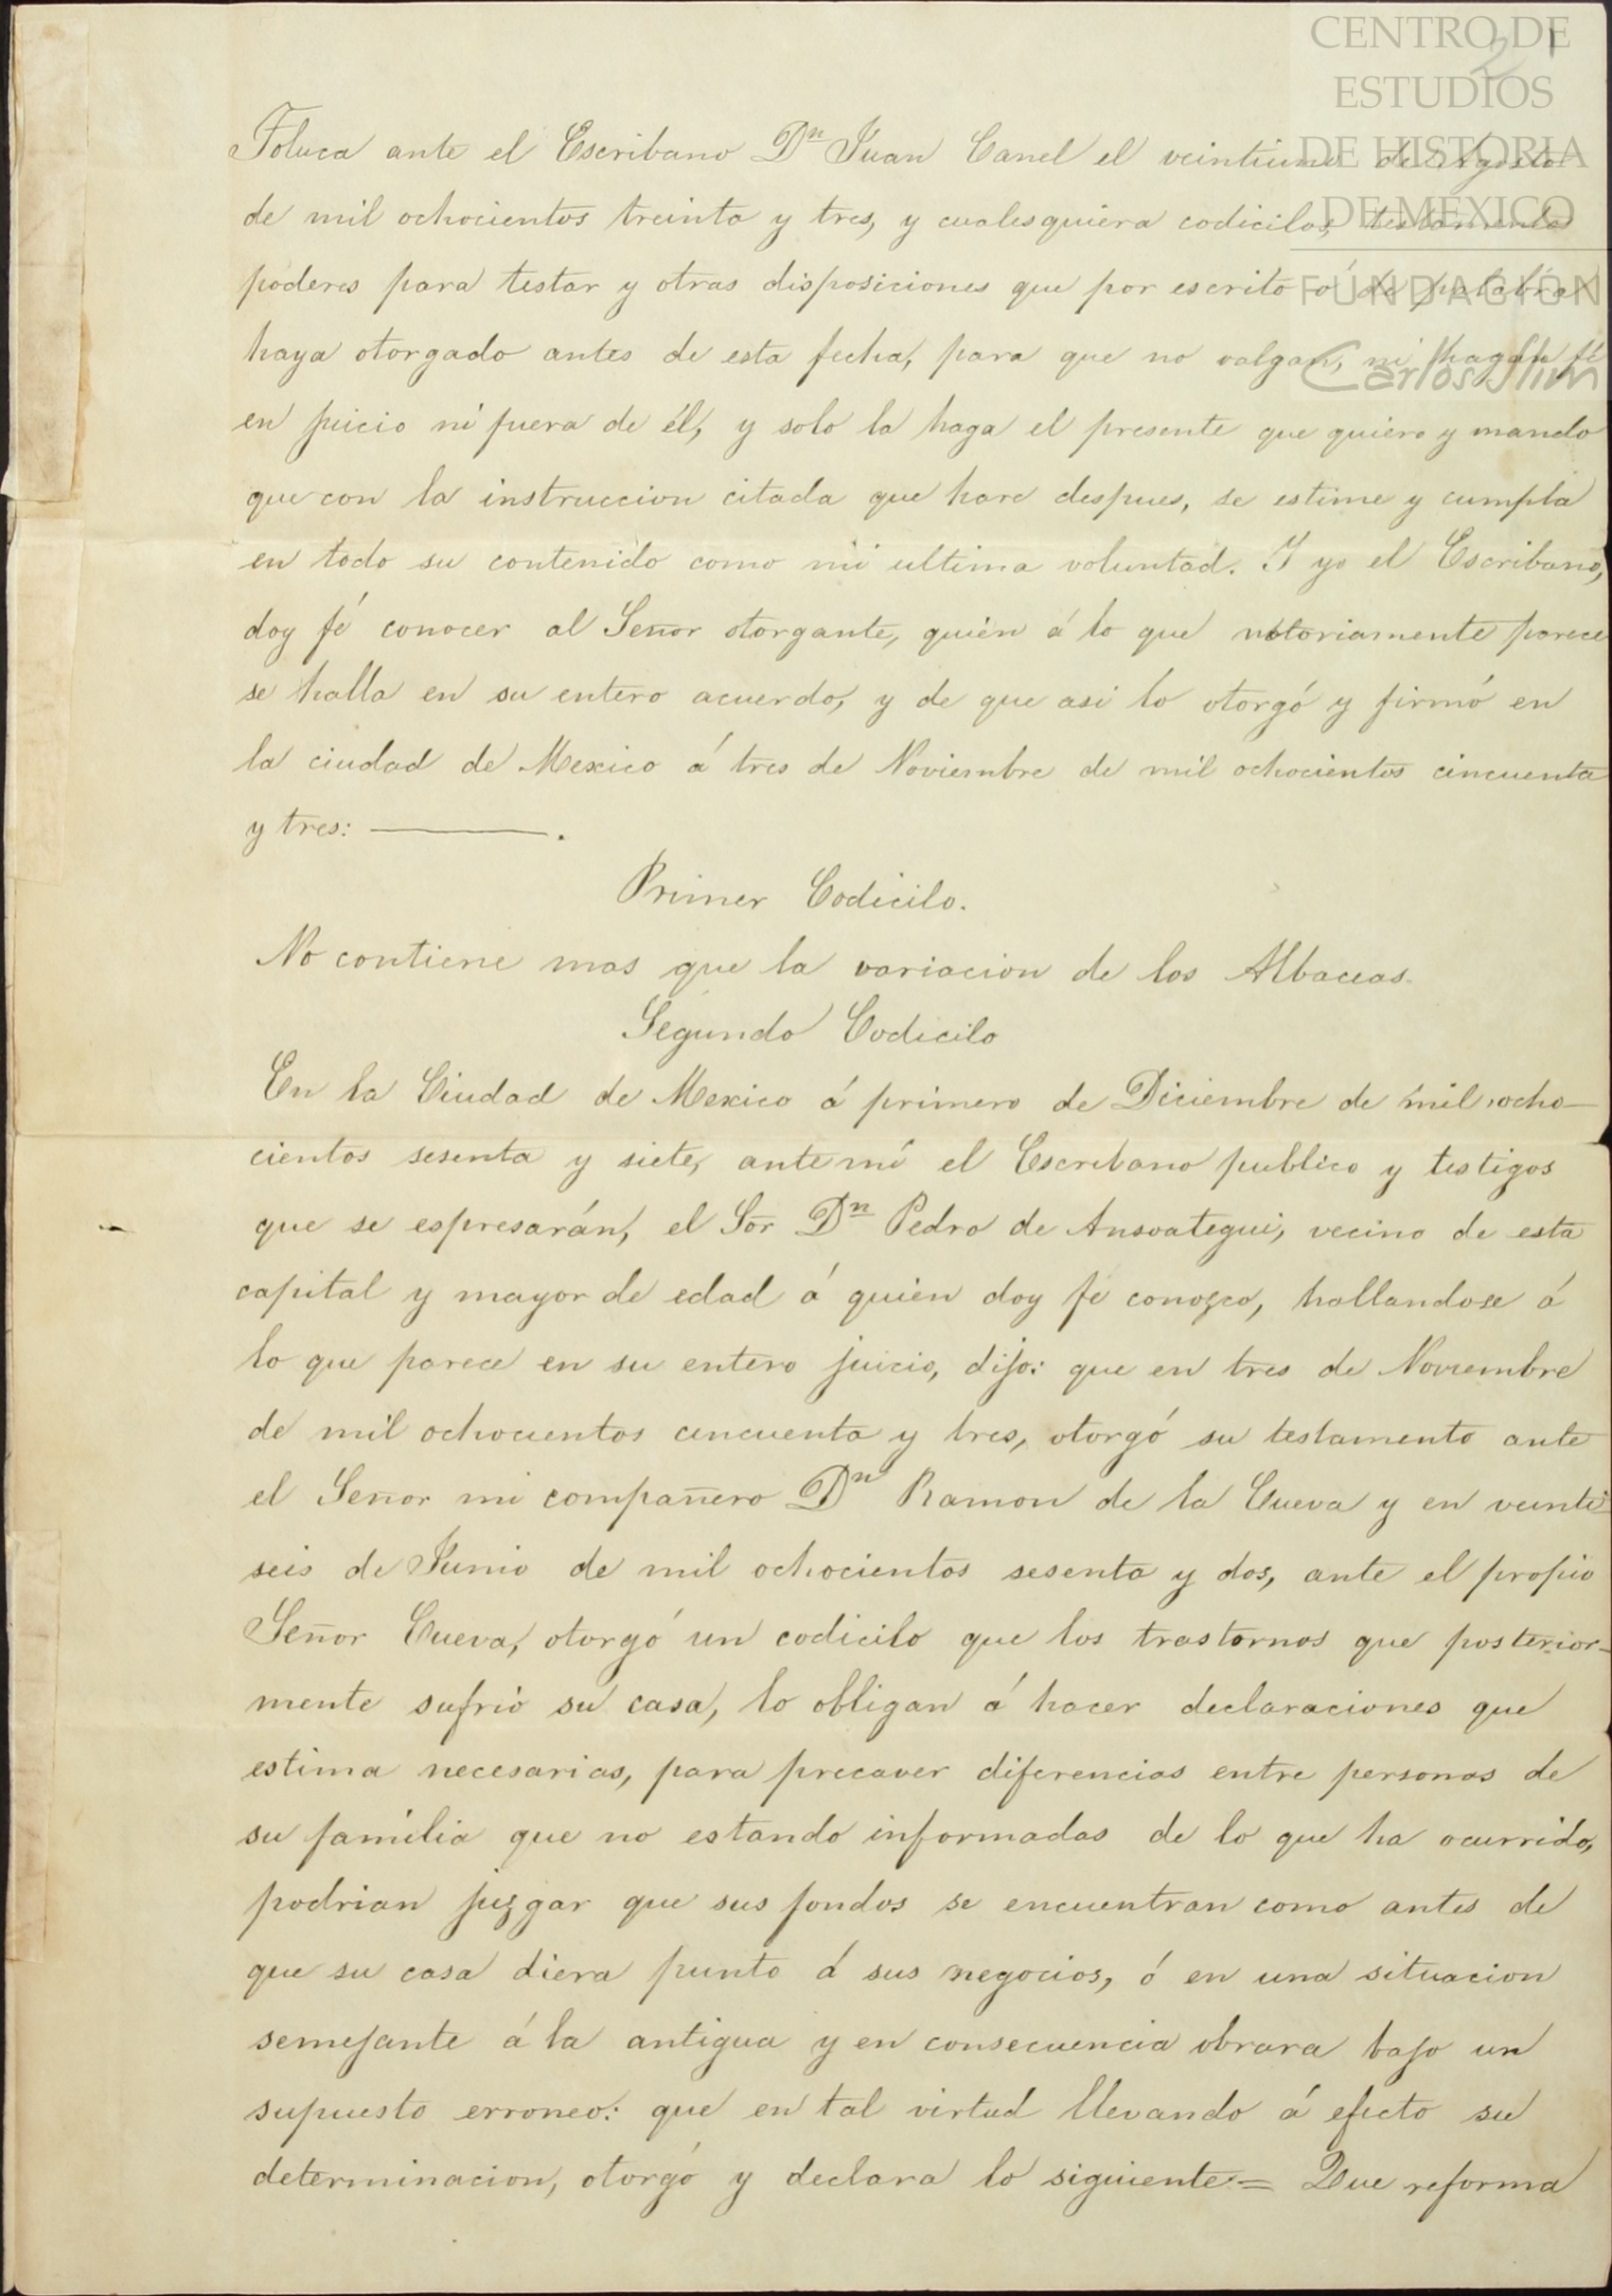 CENTRO DE
ESTUDIOS
DE HISTORIA
DE MEXICO
FUNDACIÓN
Carlos Slim
Toluca ante el Escribano Dn Juan Canel el veintiuno de Agosto
de mil ochocientos treinta y tres, y cualesquiera codicilos, testamentos
poderes para testar y otras disposiciones que por escrito ó de palabra
haya otorgado antes de esta fecha, para que no valgan, ni hagan fé
en juicio ni fuera de él, y solo la haga el presente que quiero y mando
que con la instruccion citada que haré despues, se estime y cumpla
en todo su contenido como mi ultima voluntad. Y yo el Escribano,
doy fé conocer al Señor otorgante, quién á lo que notoriamente parece
se halla en su entero acuerdo, y de que asi lo otorgó y firmó en
la ciudad de Mexico á tres de Noviembre de mil ochocientos cincuenta
y tres: ———.
Primer Codicilo.
No contiene mas que la variacion de los Albaceas.
Segundo Codicilo
En la Ciudad de Mexico á primero de Diciembre de mil ocho-
cientos sesenta y siete, ante mí el Escribano publico y testigos
que se espresarán, el Sor Dn Pedro de Ansoategui, vecino de esta
capital y mayor de edad á quien doy fé conozco, hallandose á
lo que parece en su entero juicio, dijo: que en tres de Noviembre
de mil ochocientos cincuenta y tres, otorgó su testamento ante
el Señor mi compañero Dn Ramon de la Cueva y en veinti-
seis de Junio de mil ochocientos sesenta y dos, ante el propio
Señor Cueva, otorgó un codicilo que los trastornos que posterior-
mente sufrió su casa, lo obligan á hacer declaraciones que
estima necesarias, para precaver diferencias entre personas de
su familia que no estando informadas de lo que ha ocurrido,
podrian juzgar que sus fondos se encuentran como antes de
que su casa diera punto á sus negocios, ó en una situacion
semejante á la antigua y en consecuencia obrara bajo un
supuesto erroneo: que en tal virtud llevando á efecto su
determinacion, otorgó y declara lo siguiente = Que reforma